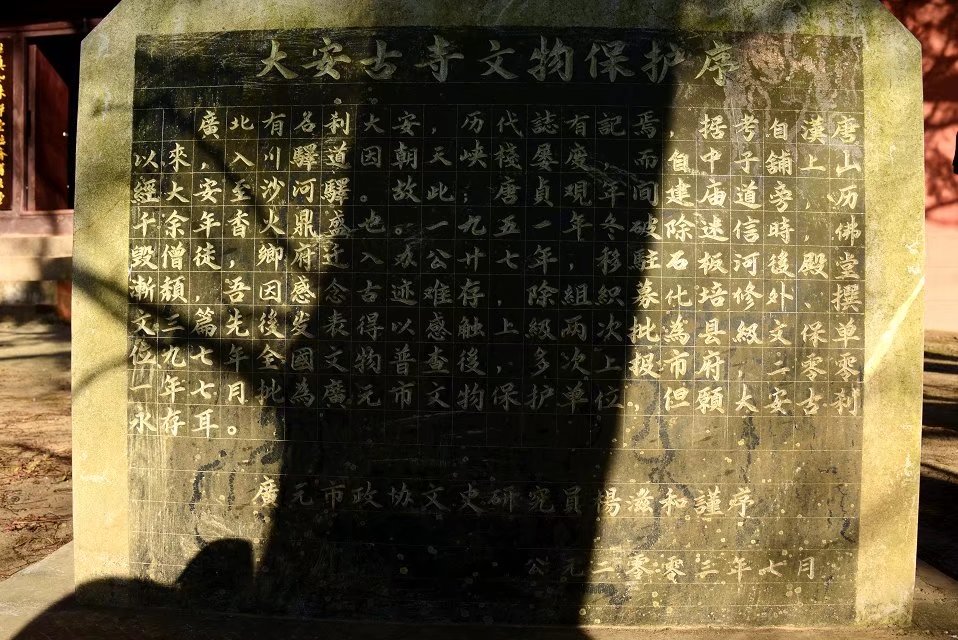 大安古寺文物保护序
廣北有名刹大安,历代誌有記焉,据考自漢唐
以來,入川驛道因朝天峡棧屡废,而自中子舖上山
經大安至沙河驛。故此;唐貞观年间建庙道旁,历
千余年香火鼎盛也。一九五一年冬破除迷信時,佛
毁僧徒,卿府迁入办公廿七年,移駐石板河後,殿堂
漸頹,吾因感念古迹难存,除組織募化培修外、撰
文三篇先後发表得以感触上級两次批為县級文保单
位九七年全國文物普查後,多次上报市府,二零零
一年七月批為廣元市文物保护单位.,但願大安古刹
永存耳。
廣元市政协文史研究員楊滋和謹序
公元二零零三年七月